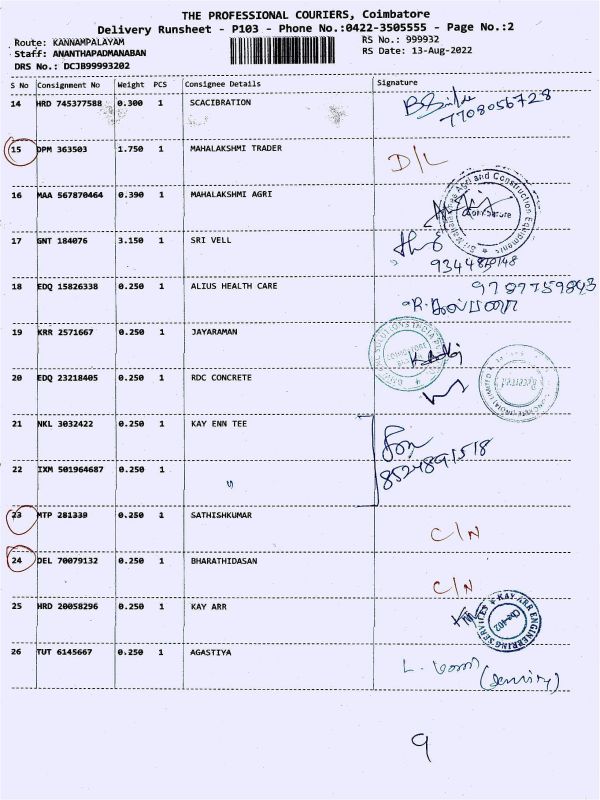 THE PROFESSIONAL COURIERS, Coimbatore
Delivery Runsheet - P103 - Phone No.:0422-3505555 - Page No.:2
Route: KANNAMPALAYAM
RS No.: 999932
Staff: ANANTHAPADMANABAN
RS Date: 13-Aug-2022
DRS No.: DCJB99993202
S No Consignment No Weight PCS Consignee Details Signature
14 HRD 745377588 0.300 1 SCACIBRATION
7708056728
15 DPM 363503 1.750 1 MAHALAKSHMI TRADER D/L
16 MAA 567870464 0.390 1 MAHALAKSHMI AGRI
Coimbatore
17 GNT 184076 3.150 1 SRI VELL
18 EDQ 15826338 0.250 1 ALIUS HEALTH CARE
9787759843
19 KRR 2571667 0.250 1 JAYARAMAN
COIMBATORE
20 EDQ 23218405 0.250 1 RDC CONCRETE
Received
21 NKL 3032422 0.250 1 KAY ENN TEE
8524891518
22 IXM 501964687 0.250 1
23 MTP 281339 0.250 1 SATHISHKUMAR C/N
24 DEL 70079132 0.250 1 BHARATHIDASAN C/N
25 HRD 20058296 0.250 1 KAY ARR
KAY ARR ENGINEERING SERVICES
Cbe-402
26 TUT 6145667 0.250 1 AGASTIYA
9